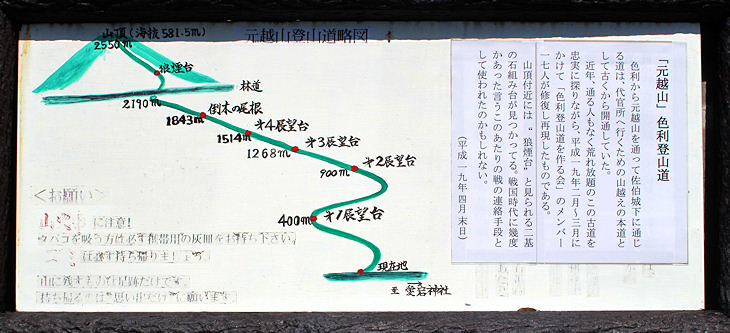 元越山登山道略図
山頂(海抜581.5m)
2550m
狼煙台
林道
2190m
倒木の尾根
1843m
才4展望台
1514m
才3展望台
1268m
才2展望台
900m
才1展望台
400m
現在地
至 愛宕神社
<お願い>
に注意!
タバコを吸う方は必ず携帯用の灰皿をお持ち下さい。
は必ず持ち帰りましょう
山に残すものは足跡だけです。
持ち帰るのは"思い出だけ"に願います
「元越山」色利登山道
色利から元越山を通って佐伯城下に通じ
る道は、代官所へ行くための山越えの本道と
して古くから開通していた。
近年、通る人もなく荒れ放題のこの古道を
忠実に探りながら、平成一九年二月~三月に
かけて「色利登山道を作る会」のメンバー
一七人が修復し再現したものである。
山頂付近には"狼煙台"と見られる二基
の石組み台が見つかってる。戦国時代に幾度
かあった言うこのあたりの戦の連絡手段と
して使われたのかもしれない。
(平成一九年四月末日)